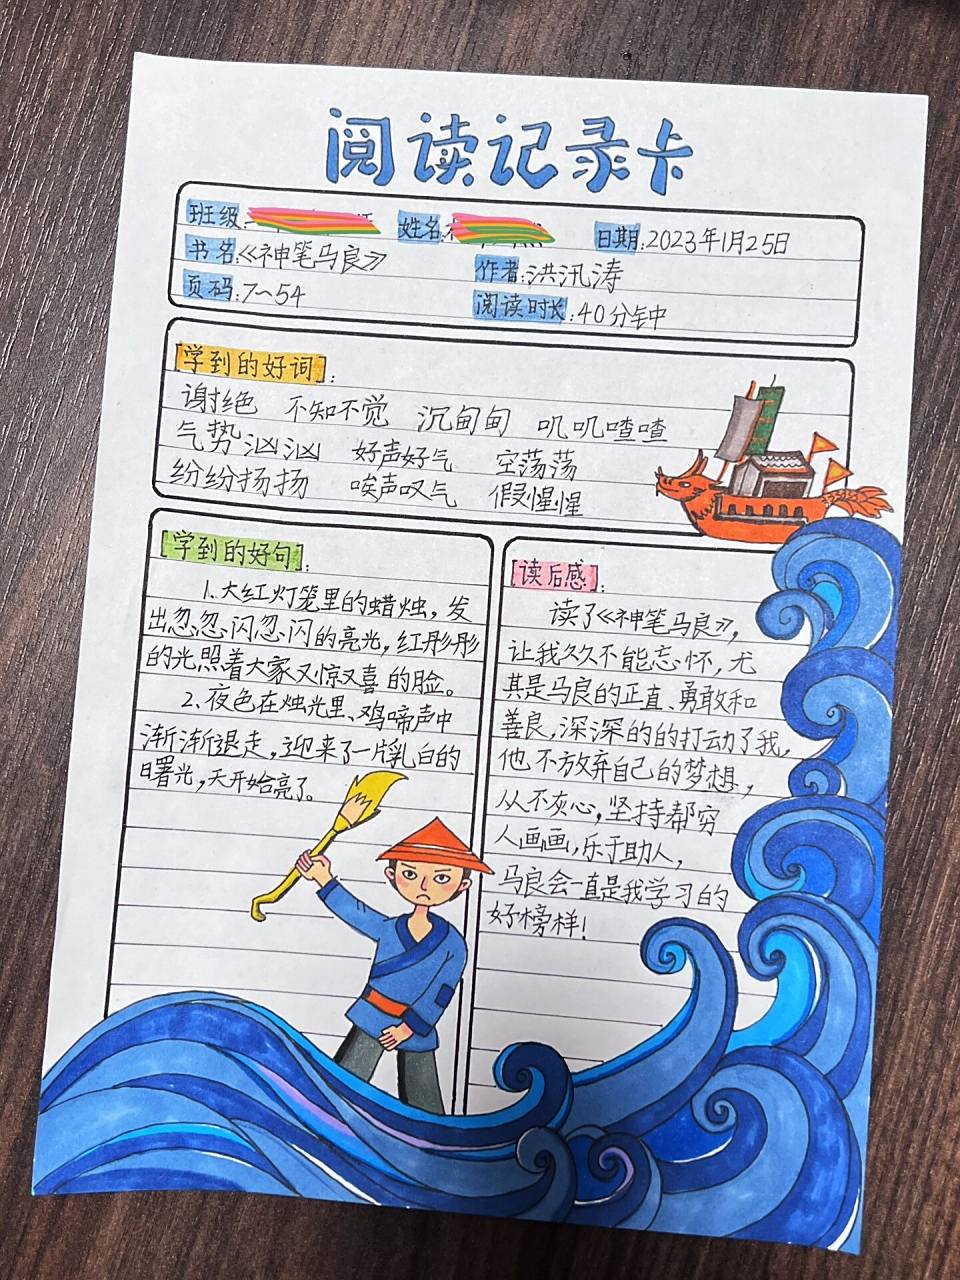 阅读记录卡
班级: 姓名: 日期:2023年1月25日
书名:《神笔马良》 作者:洪汛涛
页码:7~54 阅读时长:40分钟
[学到的好词]:
谢绝 不知不觉 沉甸甸 叽叽喳喳
气势汹汹 好声好气 空荡荡
纷纷扬扬 唉声叹气 假惺惺
[学到的好句]:
1.大红灯笼里的蜡烛，发
出忽忽闪忽闪的亮光，红彤彤
的光照着大家又惊又喜的脸。
2、夜色在烛光里、鸡啼声中
渐渐退走，迎来了一片乳白的
曙光，天开始亮了。
[读后感]:
读了《神笔马良》，
让我久久不能忘怀，尤
其是马良的正直、勇敢和
善良，深深的的打动了我，
他不放弃自己的梦想，
从不灰心，坚持帮穷
人画画，乐于助人，
马良会一直是我学习的
好榜样！